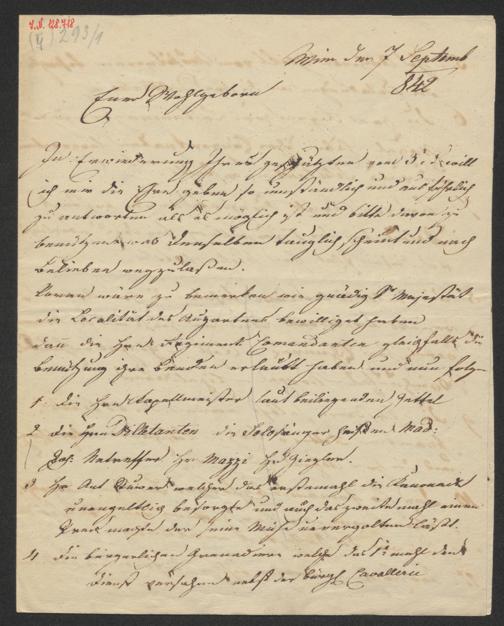 I.N. 128.718
293/1
Wien den 7 Septemb
842
Euer Wohlgeborn
In Erwiederung Ihres geschäzten vom 3 d. will
ich mir die Ehre geben so umständlich und ausführlich
zu antworten als es möglich ist und bitte davon zu
benützen was denselben tauglich scheint und nach
Belieben wegzulaßen.
Voran wäre zu bemerken wie gnädig Sr Majestät
die Localität des Augartens bewilliget haben
dan die Herrn Regiments Comandanten gleichfalls die
benützung ihre Banden erlaubt haben und nun folgen
1 die Herrn Capellmeister laut beiliegenden Zettel
2 die Herrn Dilletanten die Solosänger Mad:
Hr Mozzi Hr Ziegler.
3 Hr Ant welcher das erstemahl die
unengeltlich besorgte und auch das zweite mahl einen
Preis machte der seine Mühe unvergolten läßt.
4 die bürgerlichen Grenadiere welche das 1te mahl den
Dienst versahen nebst der bürgl Cavallerie